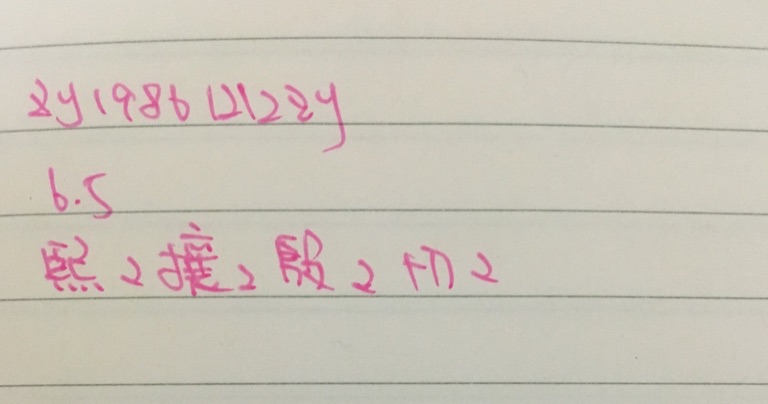 zy19861212zy
6.5
熙2攘2殷2切2